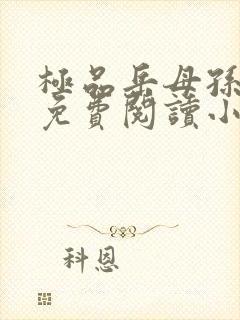 極品岳母孫
免費閱讀小
科恩